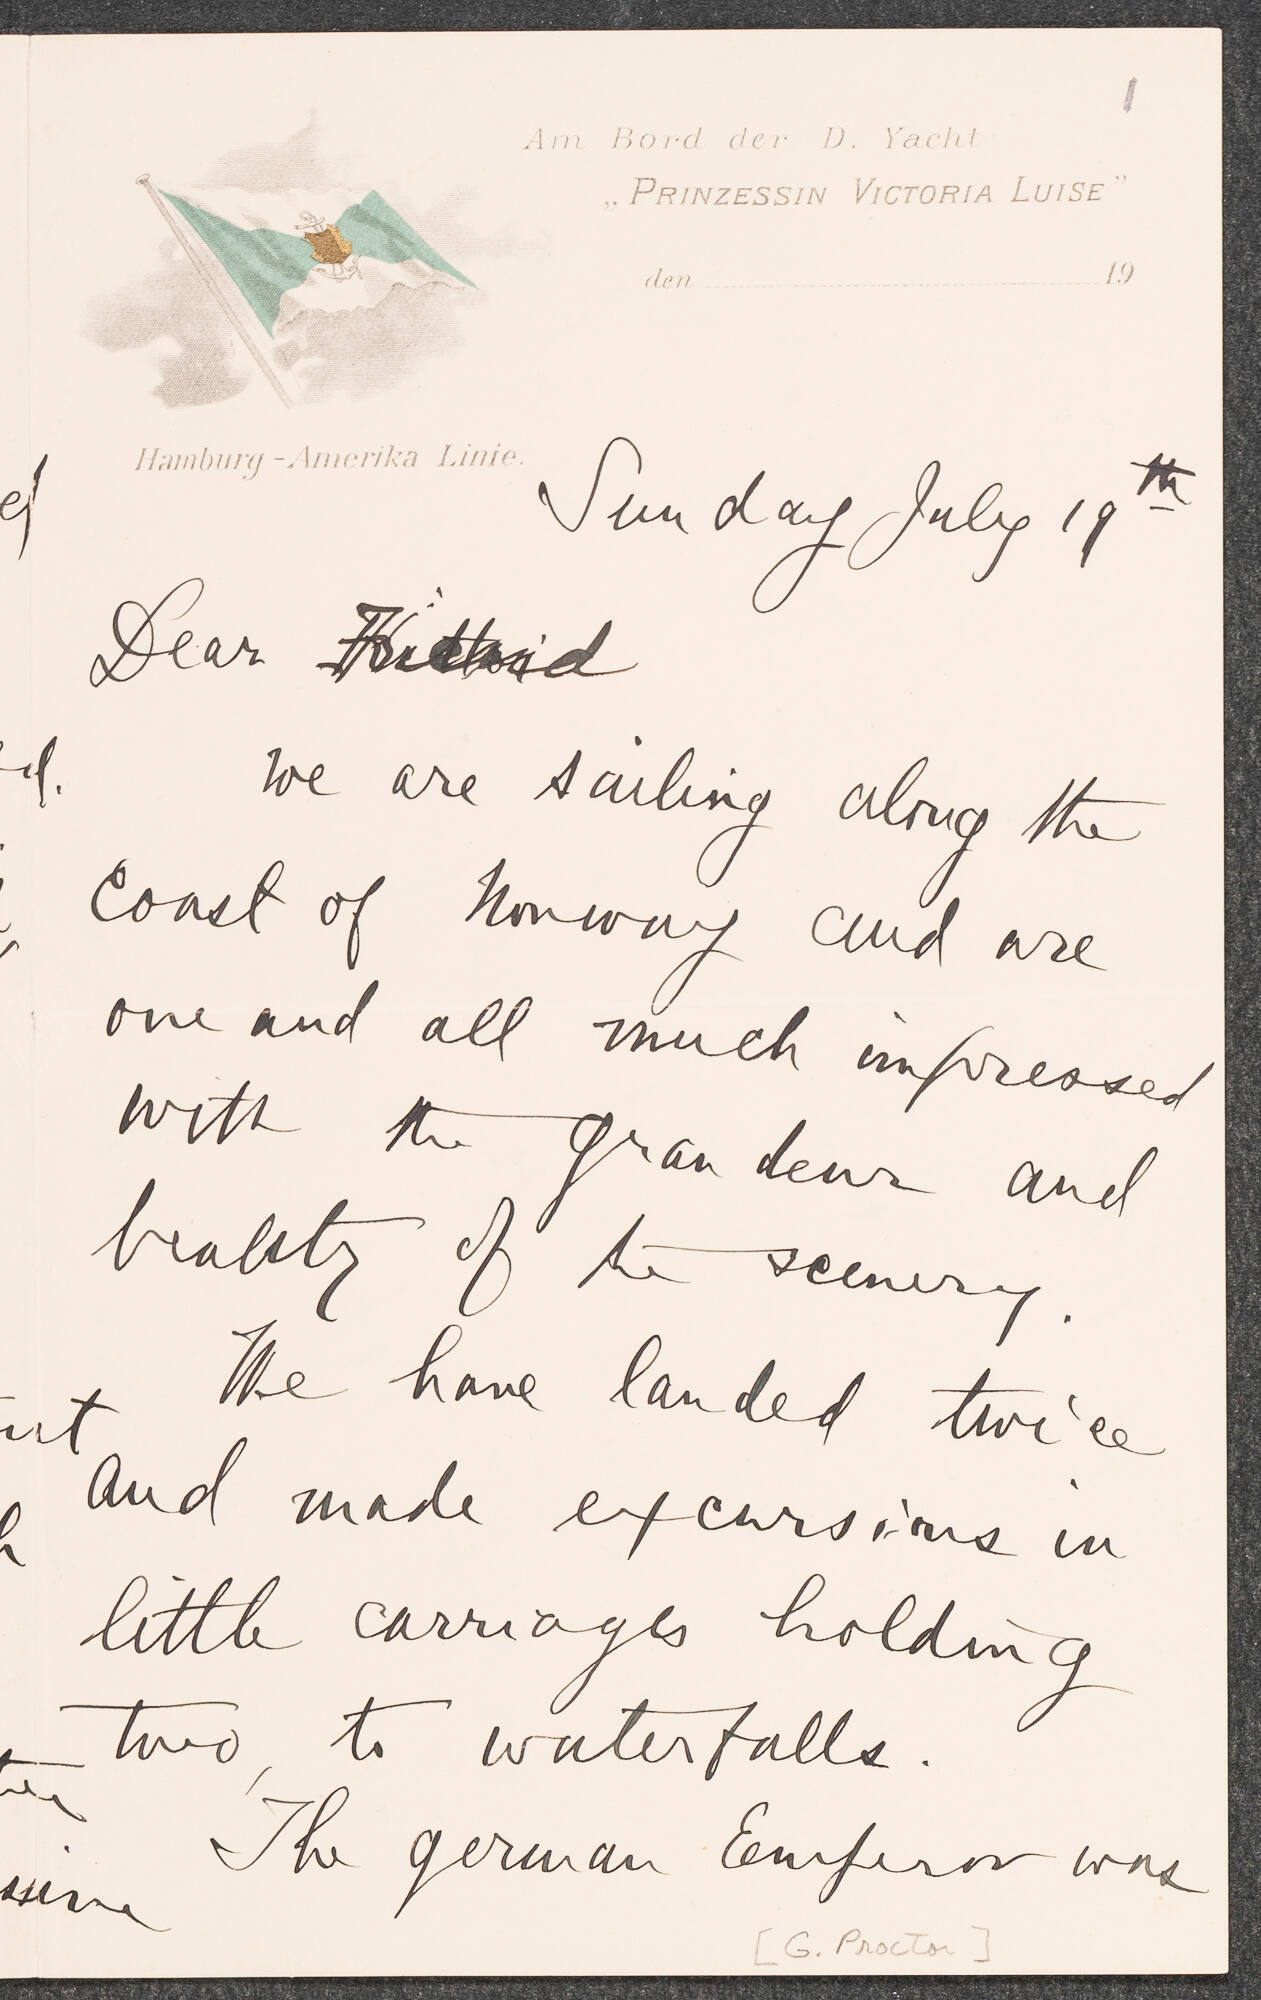 1
Am Bord der D. Yacht
„PRINZESSIN VICTORIA LUISE"
den 19
Hamburg-Amerika Linie.
Sunday July 19th
Dear
we are sailing along the
coast of Norway and are
one and all much impressed
with the grandeur and
beauty of the scenery.
We have landed twice
and made excursions in
little carriages holding
two, to waterfalls.
The german Emperor was
[G. Proctor]